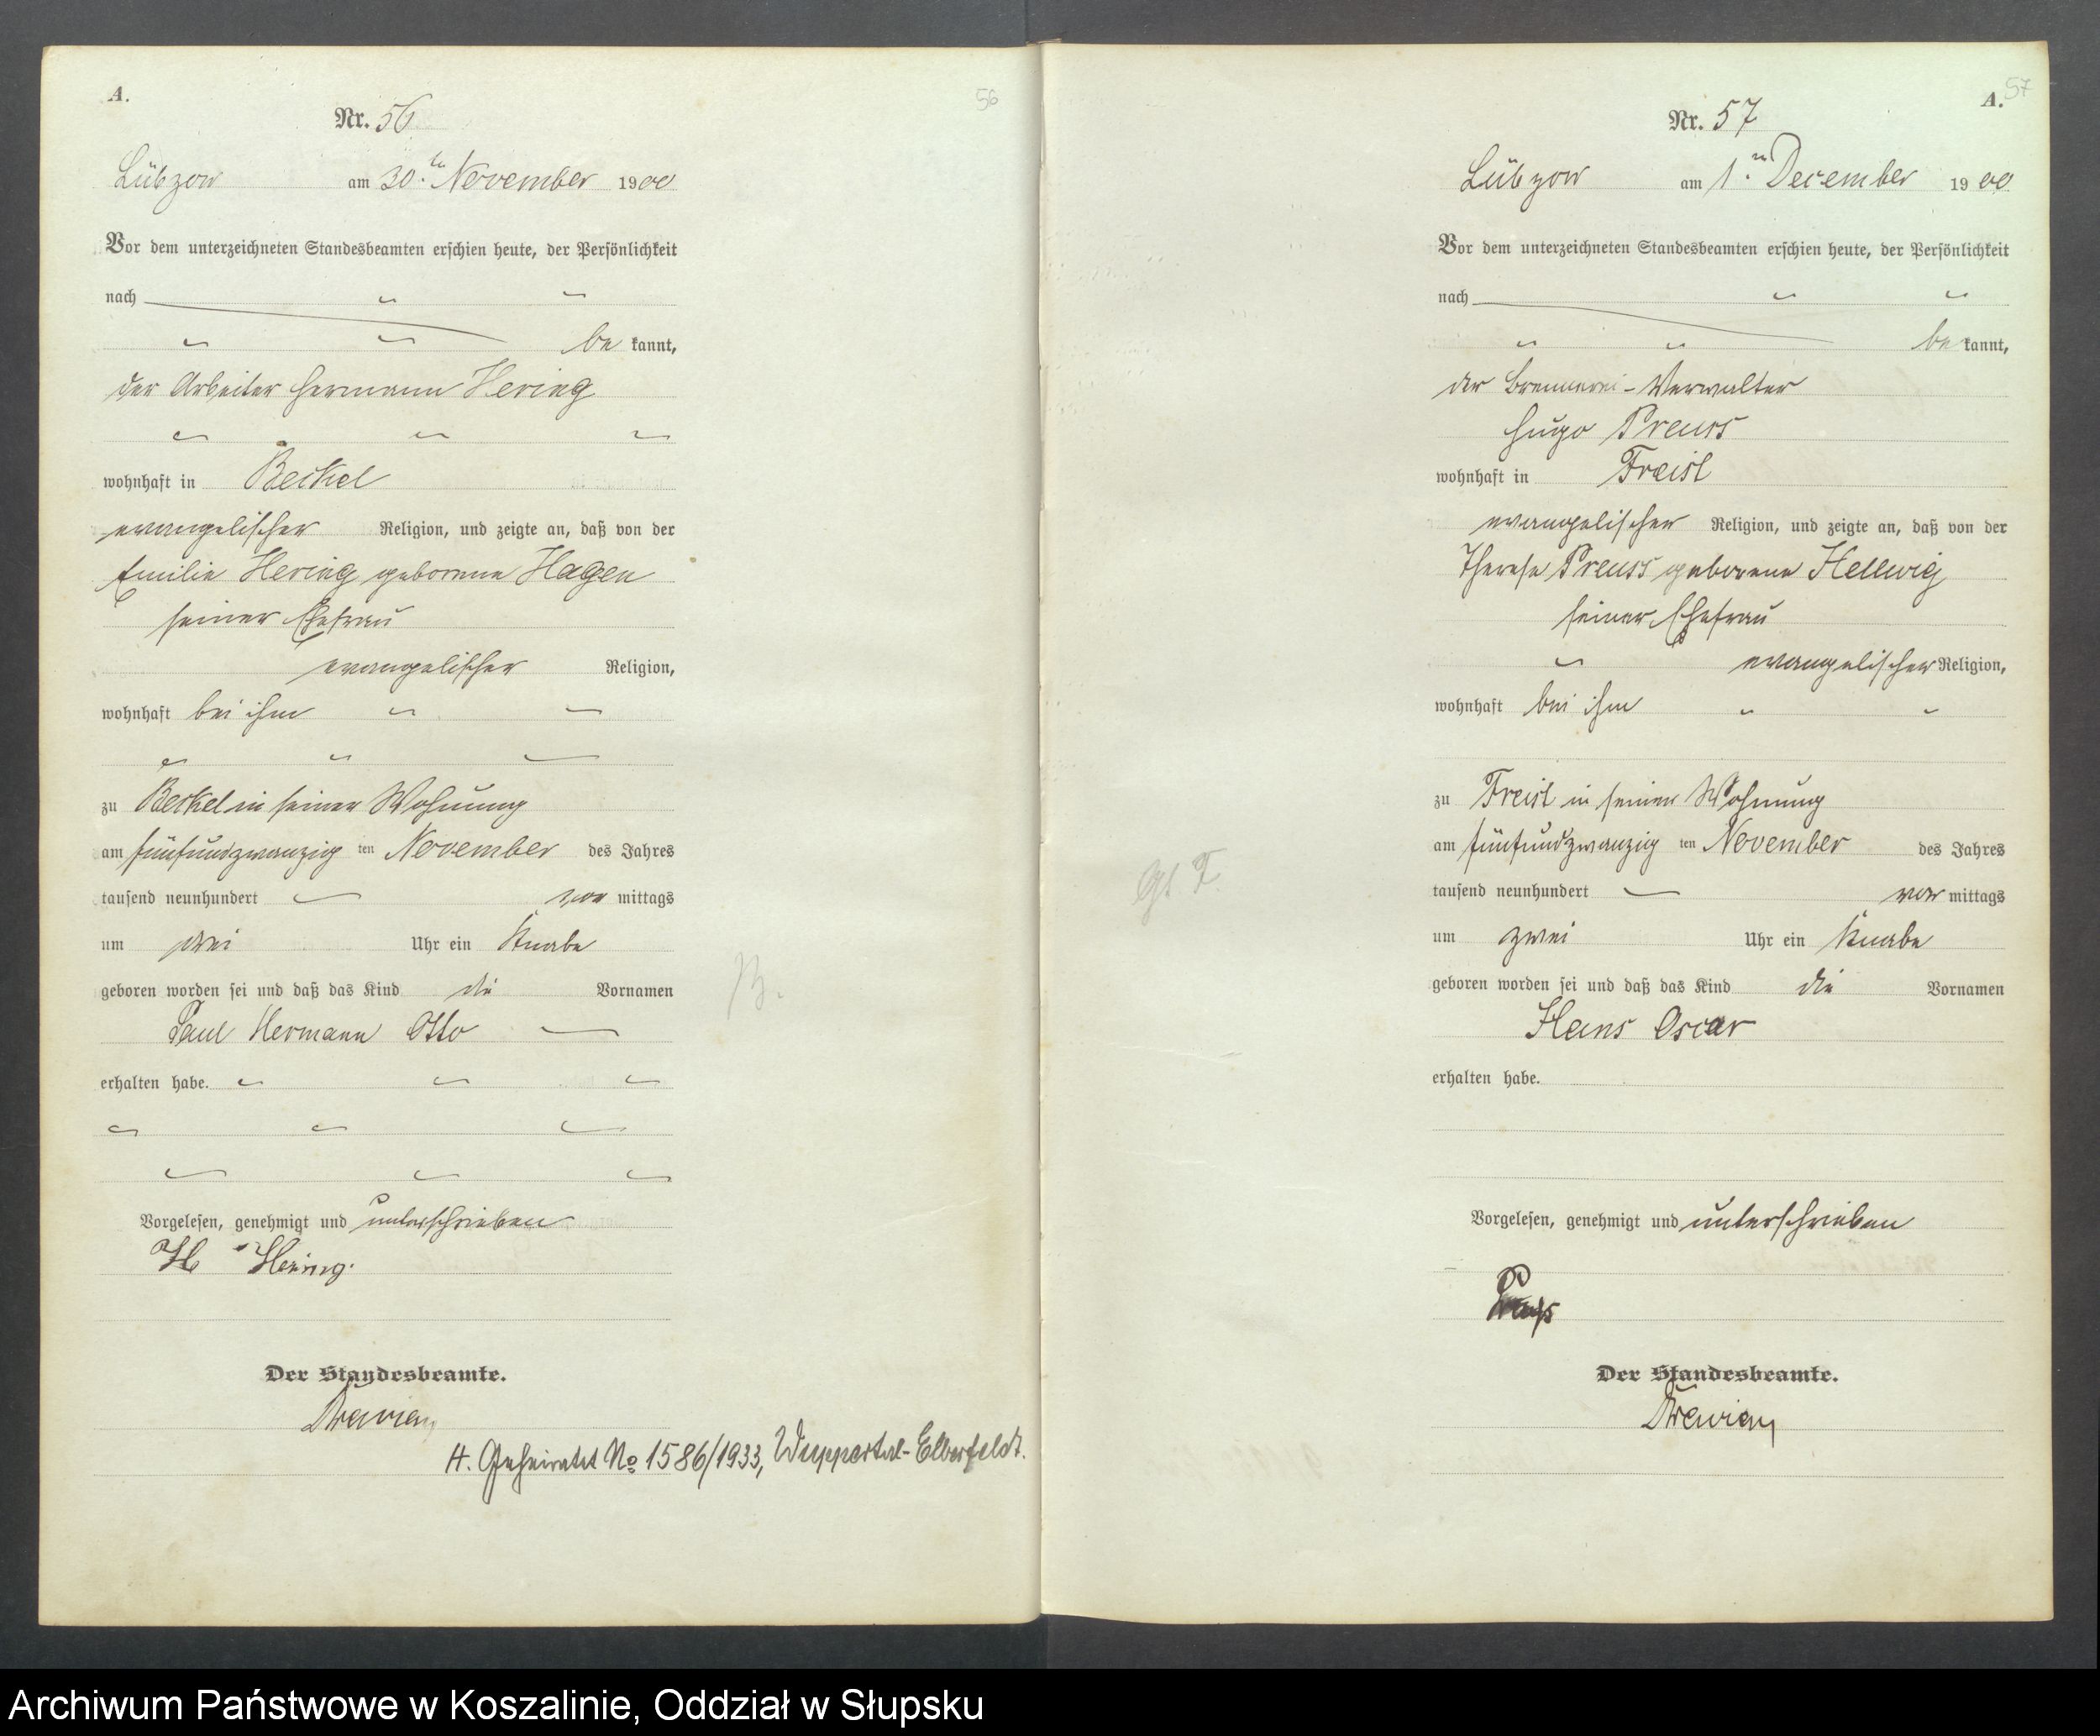 A.
56
Nr. 56
Lübzow am 30.ten November 1900
Vor dem unterzeichneten Standesbeamten erschien heute, der Persönlichkeit
nach
be kannt,
der Arbeiter Hermann Hering
wohnhaft in Beckel
evangelischer Religion, und zeigte an, daß von der
Emilie Hering geborene Hagen
seiner Ehefrau
evangelischer Religion,
wohnhaft bei ihm
zu Beckel in seiner Wohnung
am fünfundzwanzig ten November des Jahres
tausend neunhundert vor mittags
um drei Uhr ein Knabe
geboren worden sei und daß das Kind die Vornamen
Paul Hermann Otto
erhalten habe.
Vorgelesen, genehmigt und unterschrieben
H Hering.
Der Standesbeamte.
H. Geheiratet No 1586/1933, Wuppertal-Elberfeldt.
B.
A.
57
Nr. 57
Lübzow am 1.ten December 1900
Vor dem unterzeichneten Standesbeamten erschien heute, der Persönlichkeit
nach
be kannt,
der Brennerei-Verwalter
Hugo Preuss
wohnhaft in Freist
evangelischer Religion, und zeigte an, daß von der
Therese Preuss geborene Hellwig
seiner Ehefrau
evangelischer Religion,
wohnhaft bei ihm
zu Freist in seiner Wohnung
am fünfundzwanzig ten November des Jahres
tausend neunhundert vor mittags
um zwei Uhr ein Knabe
geboren worden sei und daß das Kind die Vornamen
Hans Oscar
erhalten habe.
Vorgelesen, genehmigt und unterschrieben
Preuß
Der Standesbeamte.
Archiwum Państwowe w Koszalinie, Oddział w Słupsku